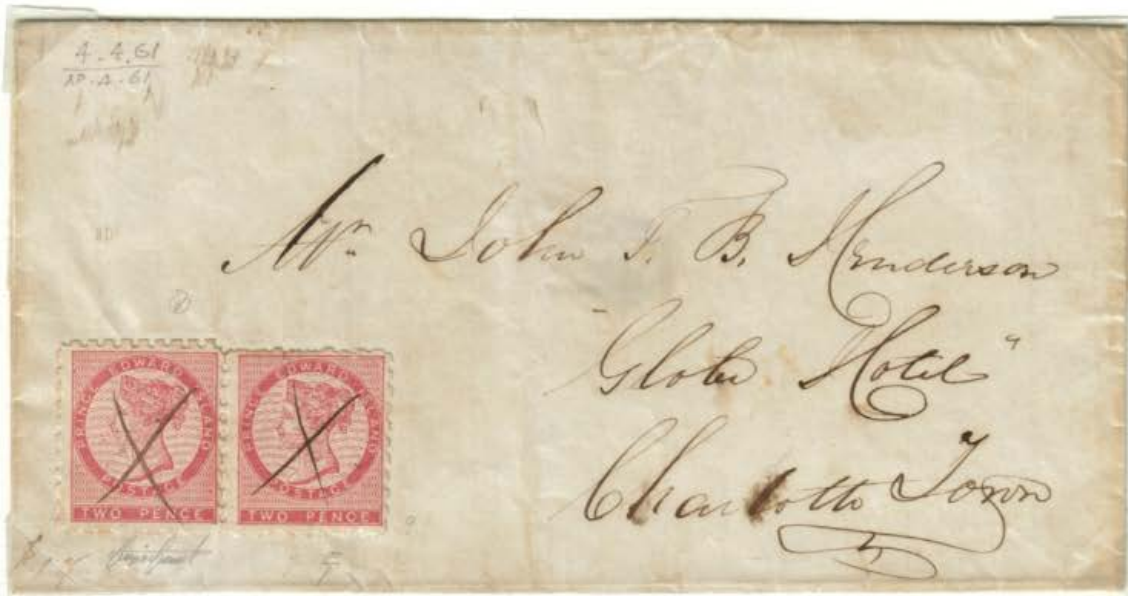 4.4.61
AP.4.61
Mr. John F. B. Henderson
"Globe Hotel"
Charlotte Town
PRINCE EDWARD ISLAND
POSTAGE
TWO PENCE
PRINCE EDWARD ISLAND
POSTAGE
TWO PENCE